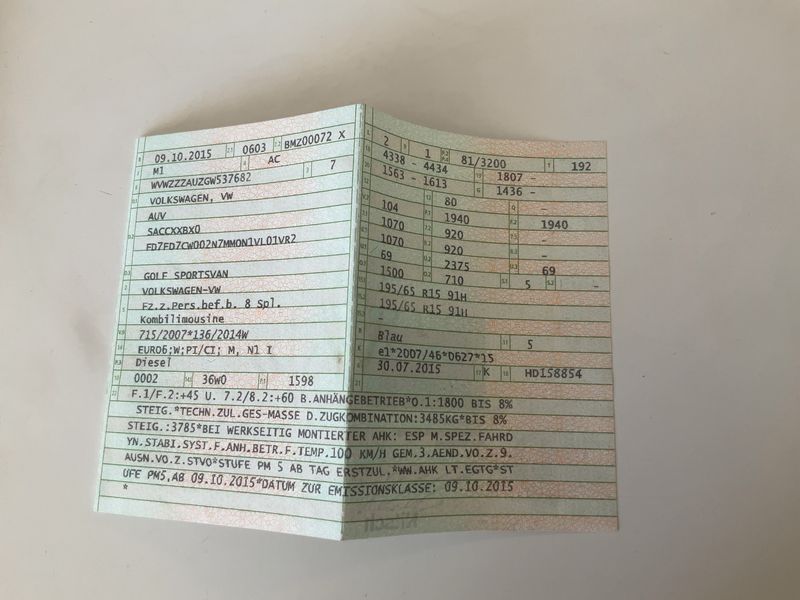 09.10.2015 0603 BMZ00072 X
M1 AC
WVWZZZAUZGW537682 7
VOLKSWAGEN, VW
AUV
SACCXXBX0
FD7FD7CW002N7MMON1VL01VR2
GOLF SPORTSVAN
VOLKSWAGEN-VW
Fz.z.Pers.bef.b. 8 Spl.
Kombilimousine
715/2007*136/2014W
EURO6;W;PI/CI; M, N1 I
Diesel
0002 36W0 1598
L 2 9 1 P.2 P.4 81/3200 T 192
4338 - 4434 1807 -
1563 - 1613 1436 -
80
104 -
1070 1940 1940
1070 920 -
69 920 -
1500 2375 69
710 5 -
195/65 R15 91H
195/65 R15 91H
-
Blau 5
e1*2007/46*0627*15
30.07.2015 K HD158854
F.1/F.2:+45 U. 7.2/8.2:+60 B.ANHÄNGEBETRIEB*O.1:1800 BIS 8%
STEIG.*TECHN.ZUL.GES-MASSE D.ZUGKOMBINATION:3485KG*BIS 8%
STEIG.:3785*BEI WERKSEITIG MONTIERTER AHK: ESP M.SPEZ.FAHRD
YN.STABI.SYST.F.ANH.BETR.F.TEMP.100 KM/H GEM.3.AEND.VO.Z.9.
AUSN.VO.Z.STVO*STUFE PM 5 AB TAG ERSTZUL.*WW.AHK LT.EGTG*ST
UFE PM5,AB 09.10.2015*DATUM ZUR EMISSIONSKLASSE: 09.10.2015
*